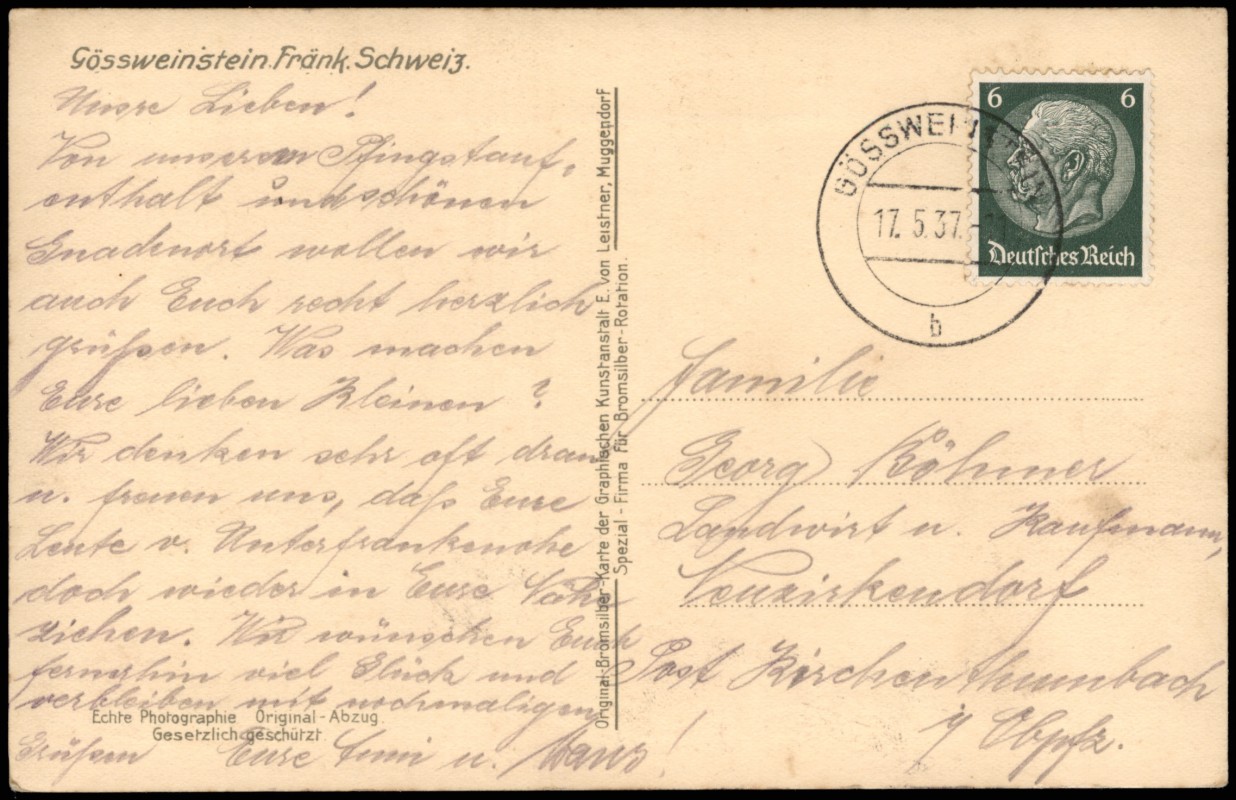 Gössweinstein. Fränk. Schweiz.
Unsre Lieben!
Von unserem Pfingstauf-
enthalt und schönen
Gnadenort wollen wir
auch Euch recht herzlich
grüßen. Was machen
Eure lieben Kleinen?
Wir denken sehr oft dran
u. freuen uns, daß Eure
Leute v. Unterfrankenohe
doch wieder in Eure Näh
ziehen. Wir wünschen Euch
fernerhin viel Glück und
verbleiben mit nochmaligen
Grüßen Eure u. Hans!
Echte Photographie Original-Abzug.
Gesetzlich geschützt
Original-Bromsilber-Karte der Graphischen Kunstanstalt E. von Leistner, Muggendorf
Spezial-Firma für Bromsilber-Rotation.
GÖSSWEINSTEIN
17.5.37.-11
b
6 6
Deutsches Reich
Familie
Georg Böhmer
Landwirt u. Kaufmann,
Neuzirkendorf
Post Kirchenthumbach
i/ Obpfz.